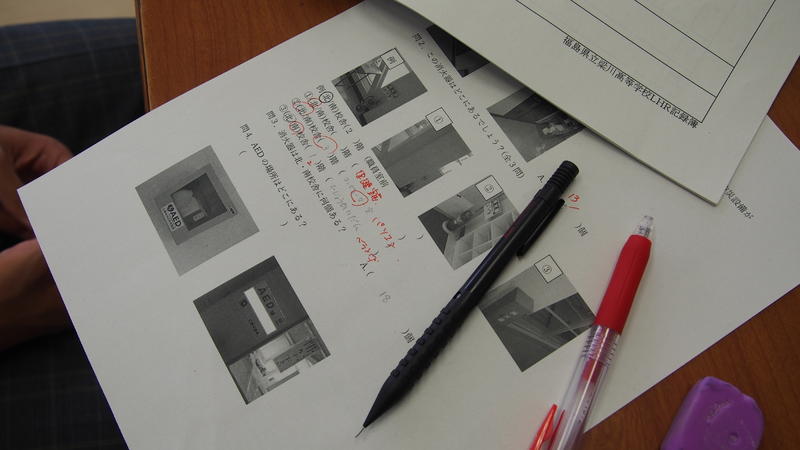 福島県立梁川高等学校LHR記録簿
災設備が
問２．この消火器はどこにあるでしょう？(全３問)
例
①
②
③
例(北・南)校舎(２)階(職員室前
①(北・南)校舎(
)階(
②(北・南)校舎(
)階(
③(北・南)校舎(
)階(
A.
13
)個
問３．消火器は北・南校舎に何個ある？
A.(
18
)個
問４．AEDの場所はどこにある？
(
)
AED
AED